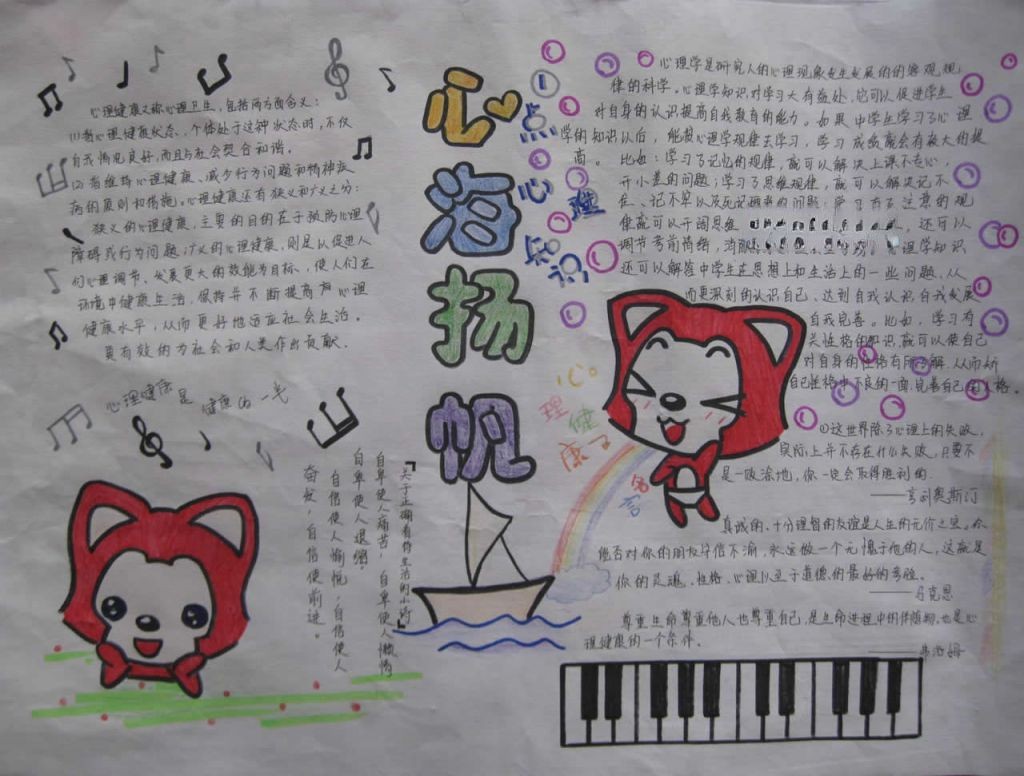 心海扬帆
一点心理知识
心理健康又称心理卫生，包括两方面含义：
(1)指心理健康状态，个体处于这种状态时，不仅
自我情况良好，而且与社会契合和谐。
(2)指维持心理健康、减少行为问题和精神疾
病的原则和措施。心理健康还有狭义和广义之分：
狭义的心理健康，主要的目的在于预防心理
障碍或行为问题，广义的心理健康，则是以促进人
们心理调节、发展更大的效能为目标，使人们在
环境中健康生活，保持并不断提高声心理
健康水平，从而更好地适应社会生活。
更有效的为社会和人类作出贡献。
心理健康是健康的一半
「关于正确看待生活的小诗」
自卑使人痛苦，自卑使人懒惰
自卑使人退缩。
自信使人愉悦，自信使人
奋发，自信使前进。
心理学是研究人的心理现象发生发展的的客观规
律的科学，心理学知识对学习大有益处，它可以促进学生
对自身的认识提高自我教育的能力。如果中学生学习了心理
学的知识以后，能按心理学规律去学习，学习成绩就会有极大的提
高。比如：学习了记忆的规律，就可以解决上课不专心，
开小差的问题；学习了思维规律，就可以解决记不
住、记不牢以及死记硬背的问题；学习有了注意的规
律就可以开阔思维，还可以
调节考前情绪，消除，心理学知识
还可以解答中学生在思想上和生活上的一些问题，从
而更深刻的认识自己，达到自我认识、自我发展
自我完善。比如，学习有
关性格的知识，就可以使自己
对自身的性格有所了解，从而纠
自己性格中不良的一面，完善自己的人格。
心理健康
名言
①这世界除了心理上的失败，
实际上并不存在什么失败，只要不
是一败涂地，你一定会取得胜利的.
——亨·利奥斯汀
真诚的、十分理智的友谊是人生的无价之宝。你
能否对你的朋友守信不渝，永远做一个无愧于他的人，这就是
你的灵魂、性格、心理以至于道德的最好的考验。
——马克思
尊重生命尊重他人也尊重自己，是生命进程中的伴随物，也是心
理健康的一个条件。
——弗洛姆